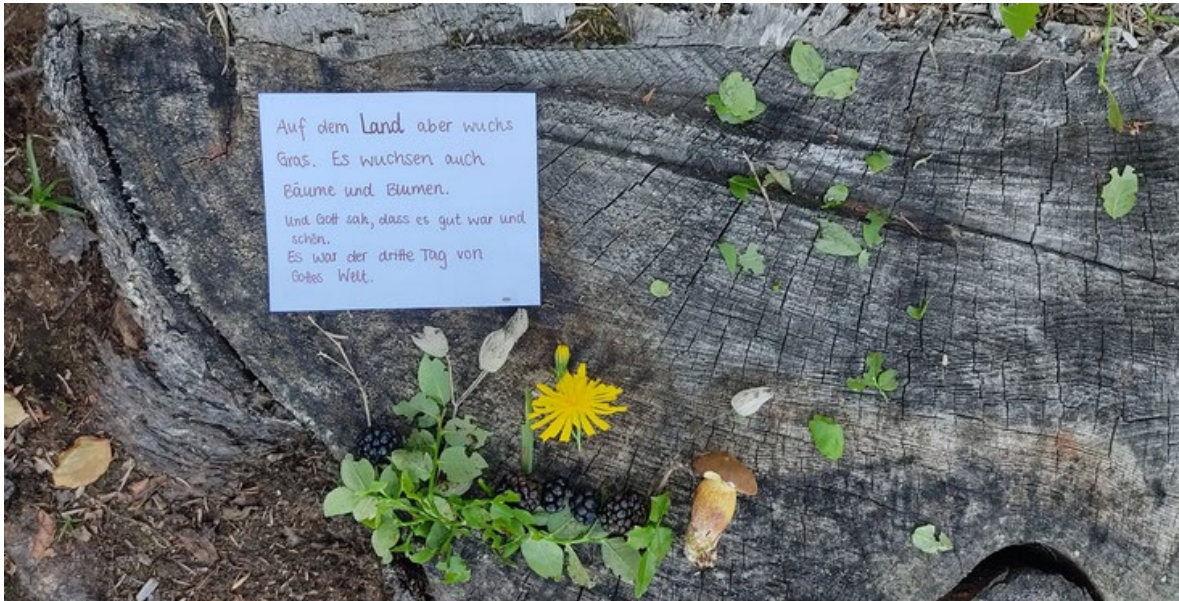 Auf dem Land aber wuchs
Gras. Es wuchsen auch
Bäume und Blumen.
Und Gott sah, dass es gut war und
schön.
Es war der dritte Tag von
Gottes Welt.